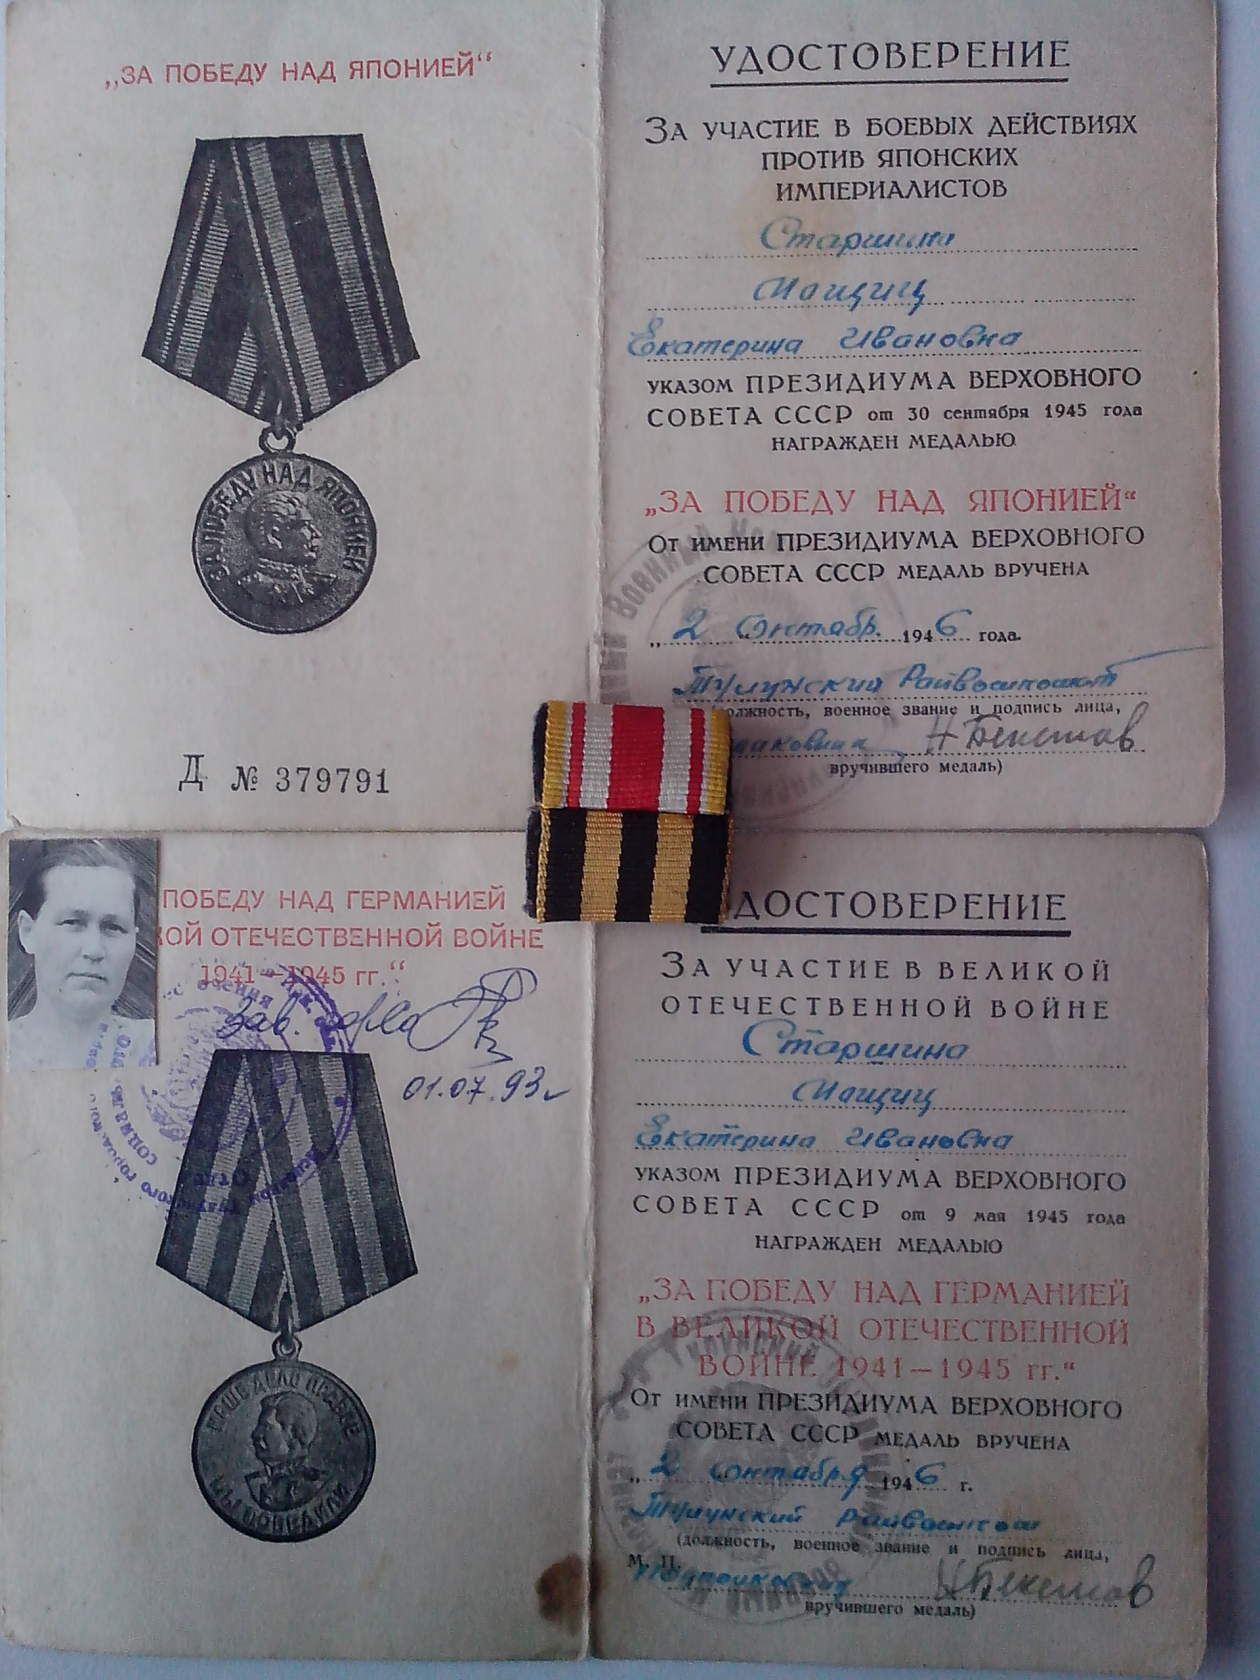 „ЗА ПОБЕДУ НАД ЯПОНИЕЙ“
ЗА ПОБЕДУ НАД ЯПОНИЕЙ
Д № 379791
УДОСТОВЕРЕНИЕ
ЗА УЧАСТИЕ В БОЕВЫХ ДЕЙСТВИЯХ
ПРОТИВ ЯПОНСКИХ
ИМПЕРИАЛИСТОВ
Старшина
Екатерина Ивановна
УКАЗОМ ПРЕЗИДИУМА ВЕРХОВНОГО
СОВЕТА СССР от 30 сентября 1945 года
НАГРАЖДЕН МЕДАЛЬЮ
„ЗА ПОБЕДУ НАД ЯПОНИЕЙ“
ОТ ИМЕНИ ПРЕЗИДИУМА ВЕРХОВНОГО
СОВЕТА СССР МЕДАЛЬ ВРУЧЕНА
„2 Октябр. 1946 года.
Тулунский Райвоенкомат
должность, военное звание и подпись лица,
Н Бекетов
вручившего медаль)
ПОБЕДУ НАД ГЕРМАНИЕЙ
КОЙ ОТЕЧЕСТВЕННОЙ ВОЙНЕ
1941—1945 гг.“
Зав.
01.07.93г
НАШЕ ДЕЛО ПРАВОЕ
МЫ ПОБЕДИЛИ
ДОСТОВЕРЕНИЕ
ЗА УЧАСТИЕ В ВЕЛИКОЙ
ОТЕЧЕСТВЕННОЙ ВОЙНЕ
Старшина
Екатерина Ивановна
УКАЗОМ ПРЕЗИДИУМА ВЕРХОВНОГО
СОВЕТА СССР от 9 мая 1945 года
НАГРАЖДЕН МЕДАЛЬЮ
„ЗА ПОБЕДУ НАД ГЕРМАНИЕЙ
В ВЕЛИКОЙ ОТЕЧЕСТВЕННОЙ
ВОЙНЕ 1941—1945 гг.“
ОТ ИМЕНИ ПРЕЗИДИУМА ВЕРХОВНОГО
СОВЕТА СССР МЕДАЛЬ ВРУЧЕНА
„2 Октября 1946 г.
Тулунский Райвоенком
(должность, военное звание и подпись лица,
М. П. Н Бекетов
вручившего медаль)